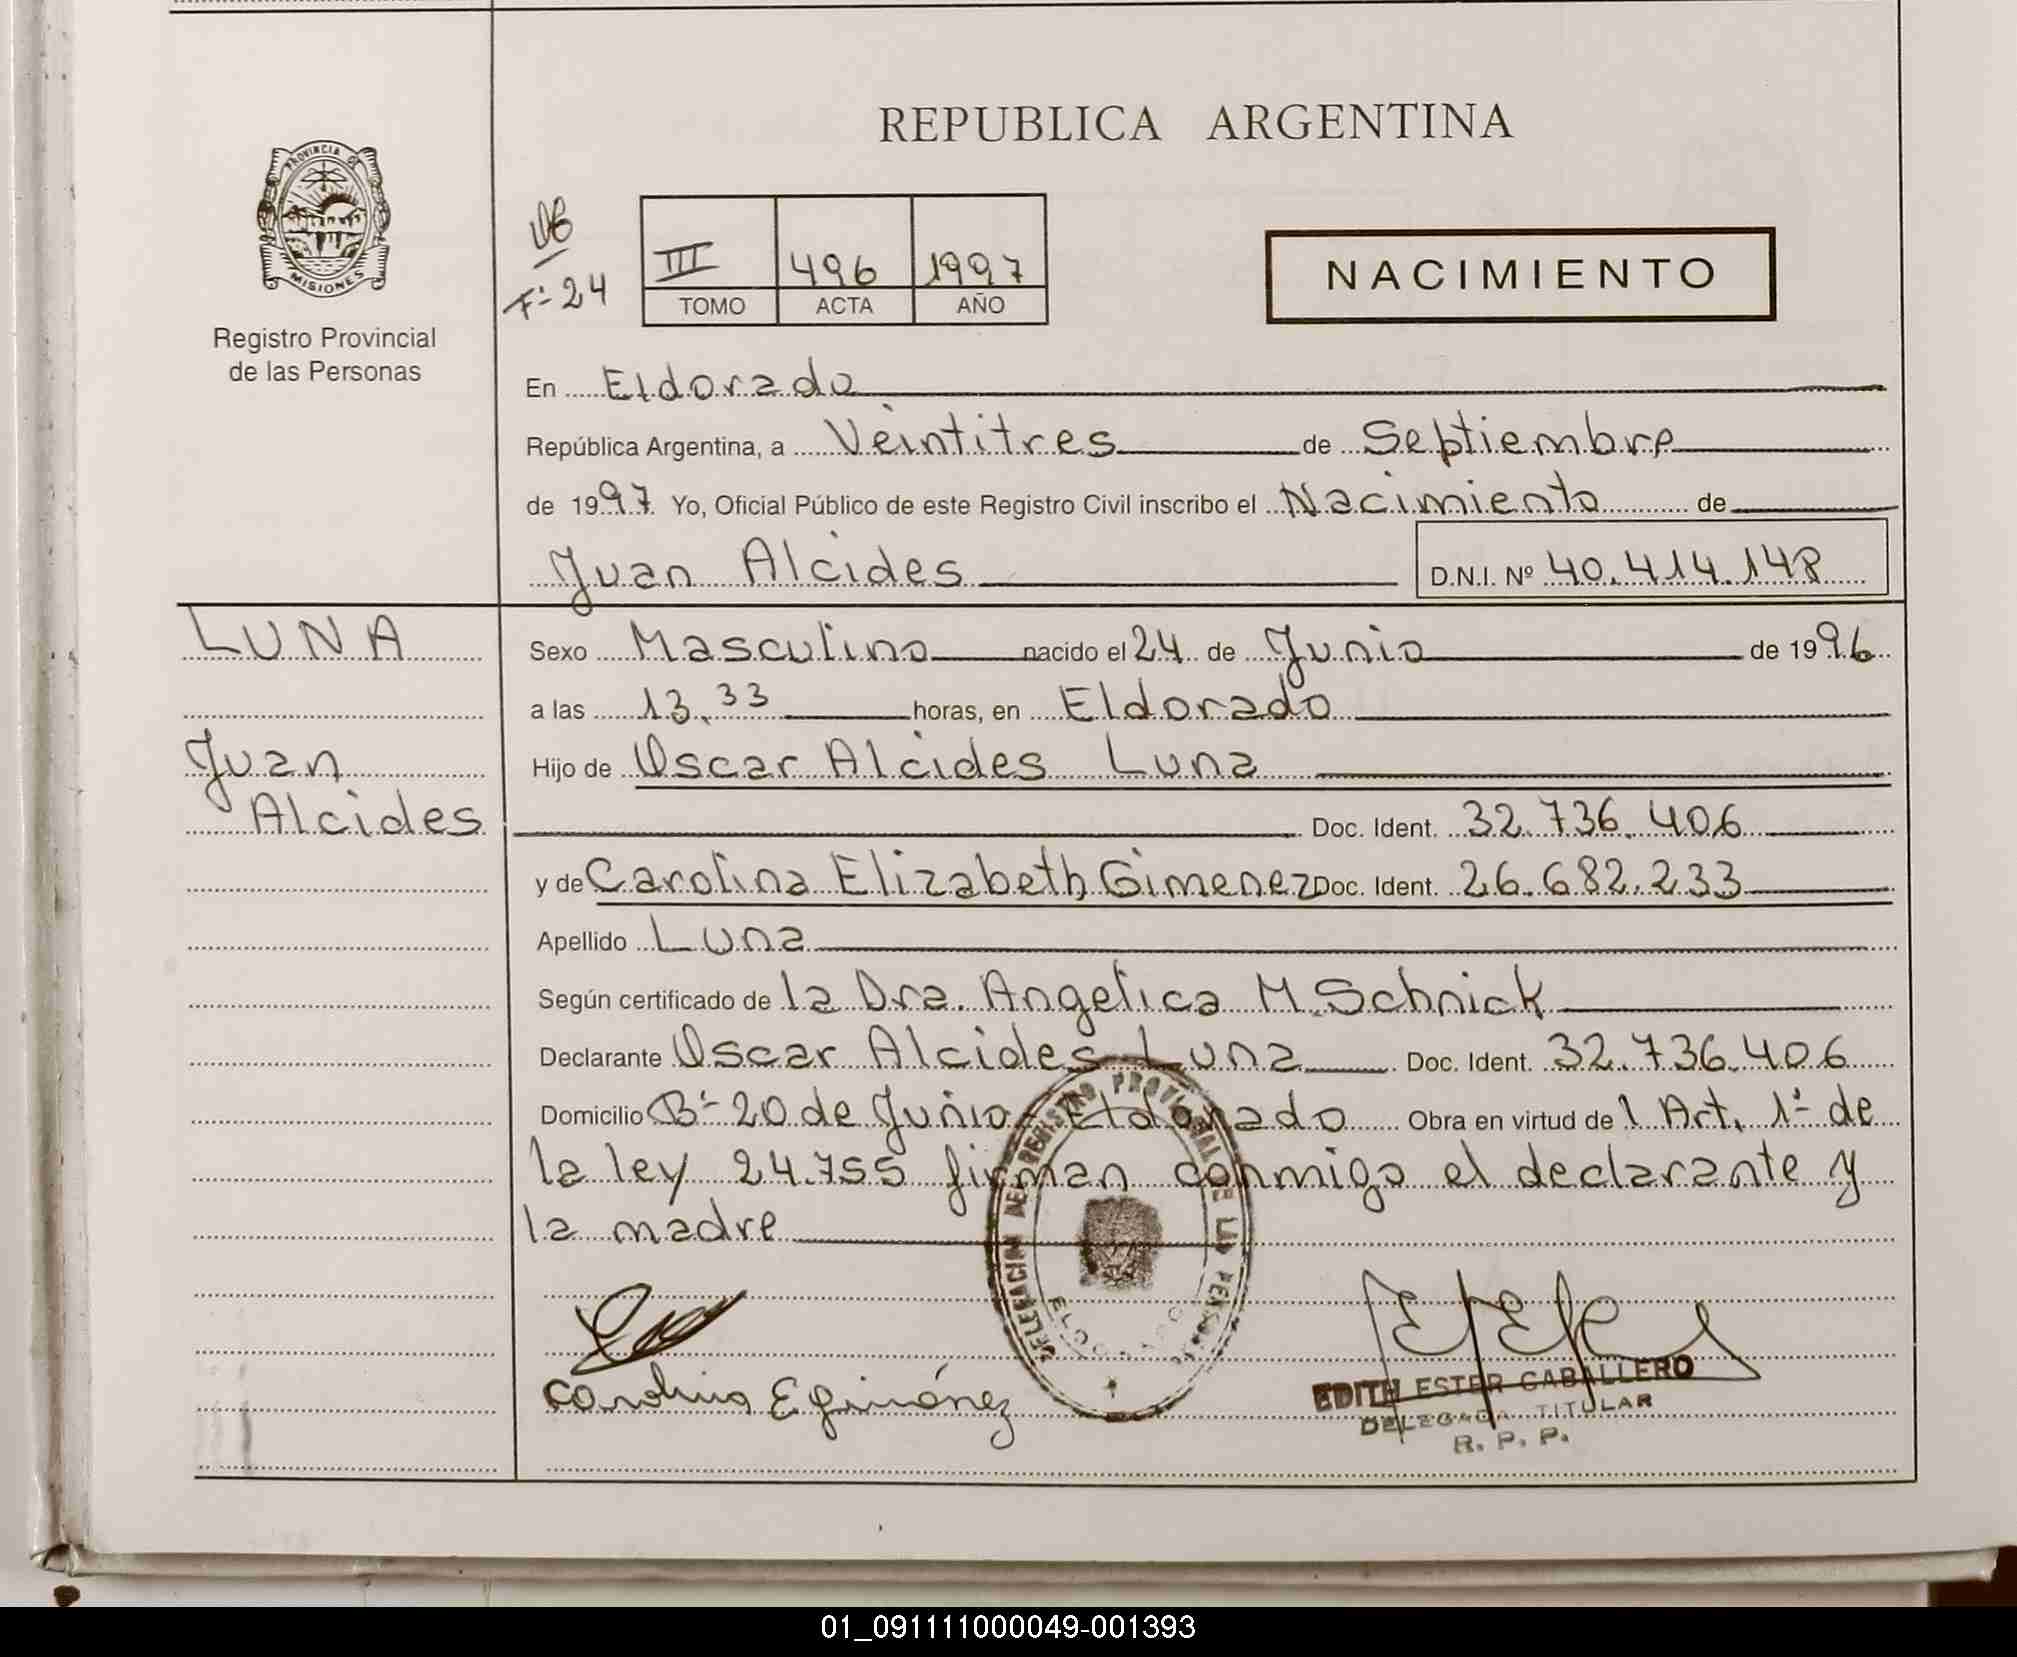 REPUBLICA ARGENTINA
PROVINCIA DE
MISIONES
Registro Provincial
de las Personas
F- 24
III 496 1997
TOMO ACTA AÑO
NACIMIENTO
En Eldorado
República Argentina, a Veintitres de Septiembre
de 1997 Yo, Oficial Público de este Registro Civil inscribo el Nacimiento de
Juan Alcides D.N.I. Nº 40.414.148
LUNA
Juan
Alcides
Sexo Masculino nacido el 24 de Junio de 1996
a las 13.33 horas, en Eldorado
Hijo de Oscar Alcides Luna
Doc. Ident. 32.736.406
y de Carolina Elizabeth Gimenez Doc. Ident. 26.682.233
Apellido Luna
Según certificado de la Dra. Angelica M. Schnick
Declarante Oscar Alcides Luna Doc. Ident. 32.736.406
Domicilio B- 20 de Junio - Eldorado Obra en virtud de l Art. 1- de
la ley 24.755 firman conmigo el declarante y
la madre
DELEGACION DE REGISTRO PROVINCIAL DE LAS PERSONAS
ELDORADO
Carolina E giménez
EDITH ESTER CABALLERO
DELEGADA TITULAR
R. P. P.
01_091111000049-001393